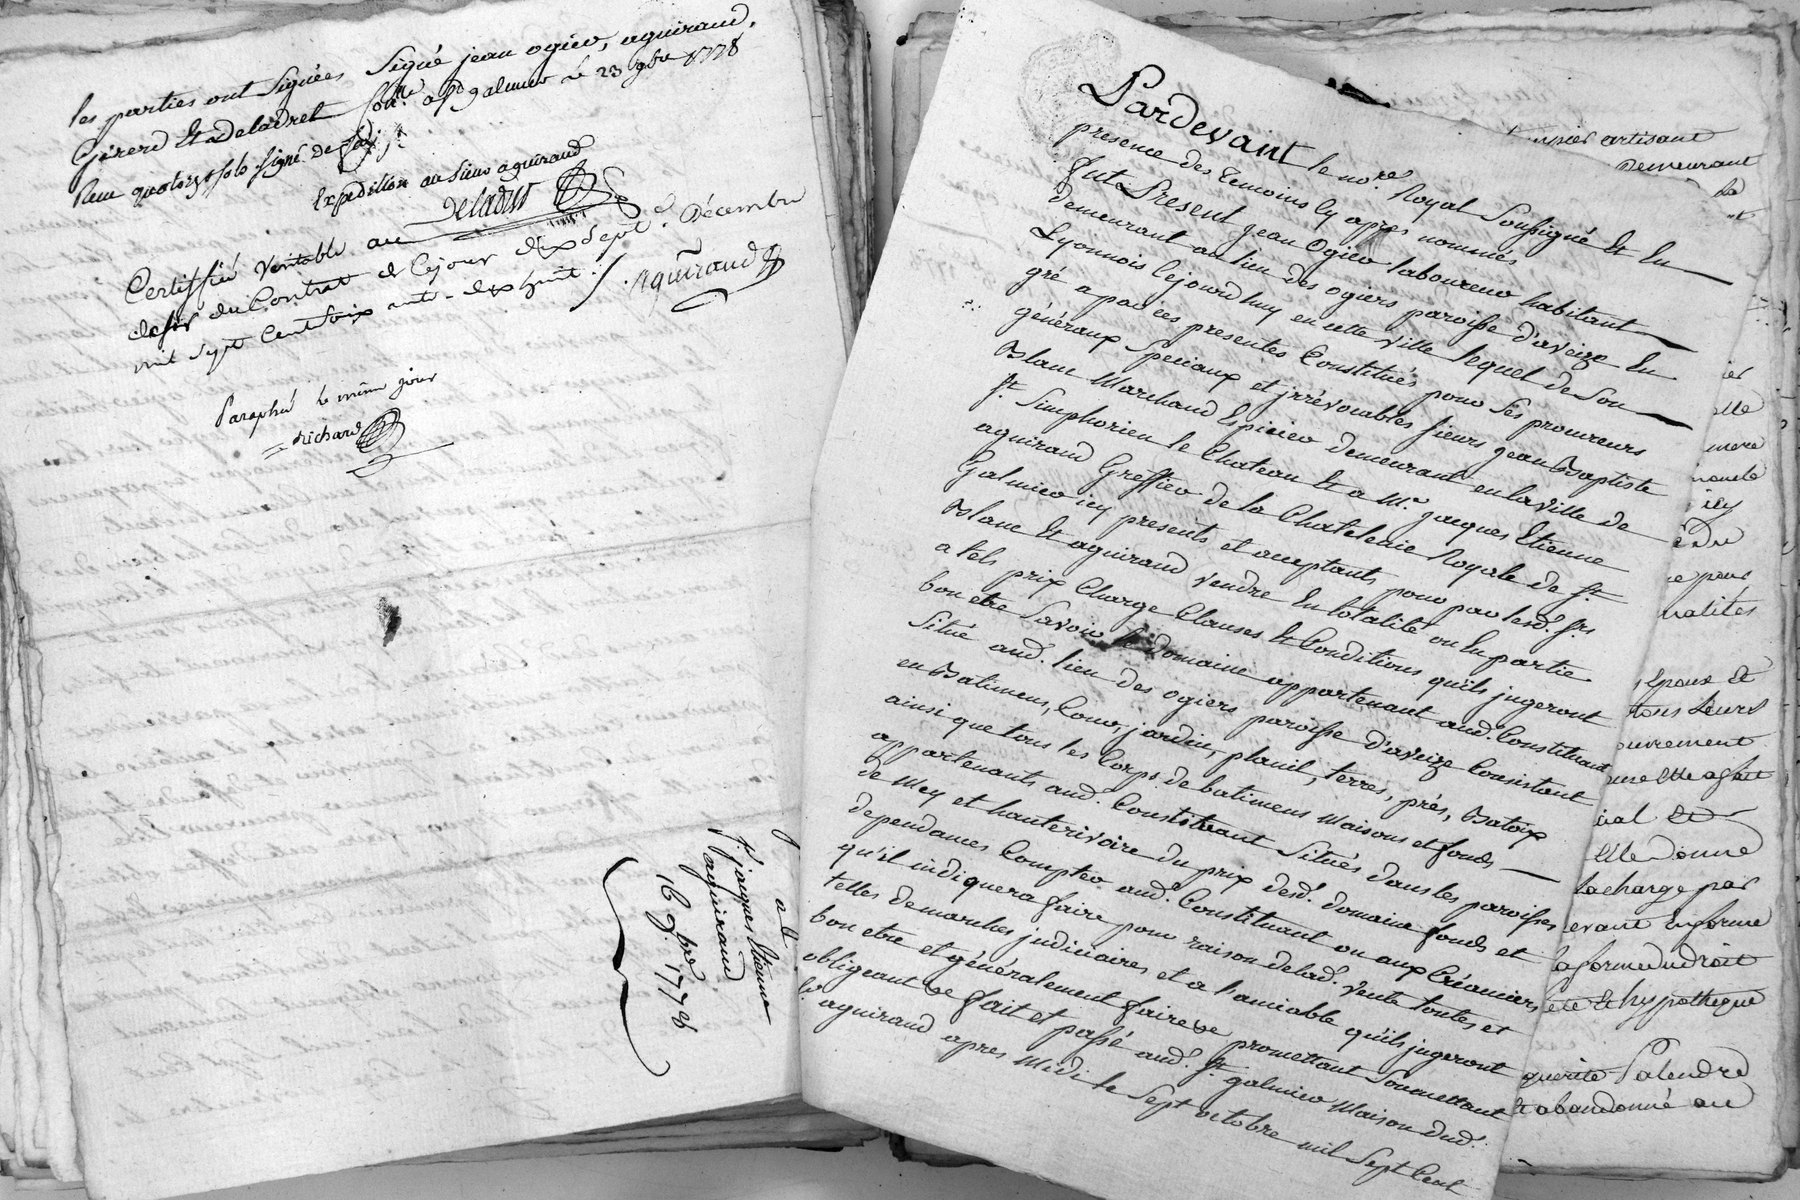 les parties ont Signées Signé jean ogier, aguiraud,
Gererd Et Deladret Con.lé a St galmier le 23 gbre 1778
Reçu quatorze sols Signé de
Expedition au Sieur aguiraud
Deladret
Certiffié veritable au
desir du Contrat de Cejour dix Sept Décembre
mil Sept Cent Soix ante-dix huit /. Aguiraud
Paraphé le même jour
Richard
a
Sr. jacques Etienne
aguiraud
16 gbre 1778
Pardevant le nore. Royal Soussigné Et En
presence des temoins Cy apres nommés
fut Present jean Ogier laboureur habitant
demeurant au lieu des ogiers paroisse d'aveize En
Lyonnois Cejourd'huy en cette ville lequel de Son
gré a par ces presentes Constitués pour Ses procureurs
généraux Speciaux et jrrévocables Sieurs jean Baptiste
Blanc Marchand Epicier demeurant en la ville de
St. Simphorien le Chateau Et a Mr. jacques Etienne
aguiraud Greffier de la Chatelenie Royale de St.
Galmier icy presents et acceptants pour par lesd. Srs
Blanc Et aguiraud vendre En totalité ou En partie
a tels prix Charge Clauses Et Conditions qu'ils jugeront
bon etre Savoir le domaine appartenant aud. Constituant
Situé aud. lieu des ogiers paroisse d'aveize Consistant
en Batimens, Cour, jardin, planil, terres, prés, Batoix
ainsi que tous les Corps de batimens Maisons et fonds
appartenants aud. Constituant Situés dans les paroisses
de Mey et hauterivoire du prix desd. domaine fonds et
dependances Compter aud. Constituant ou aux Créanciers
qu'il indiquera faire pour raison de lad. vente toutes et
telles demarches judiciaires et a l'amiable qu'ils jugeront
bon etre et généralement faire &e promettant Soumettant
obligeant &e fait et passé aud. St. galmier Maison dud.
Sr. aguiraud apres Midi le Sept octobre mil Sept Cent
artisant
Demeurant
la
ily
pour
Epoux Et
tous Leurs
Elle agbit
Et
Elle Donne
la charge par
devant En forme
la forme du droit
Et hypotheque
Palendré
Et abandonné au